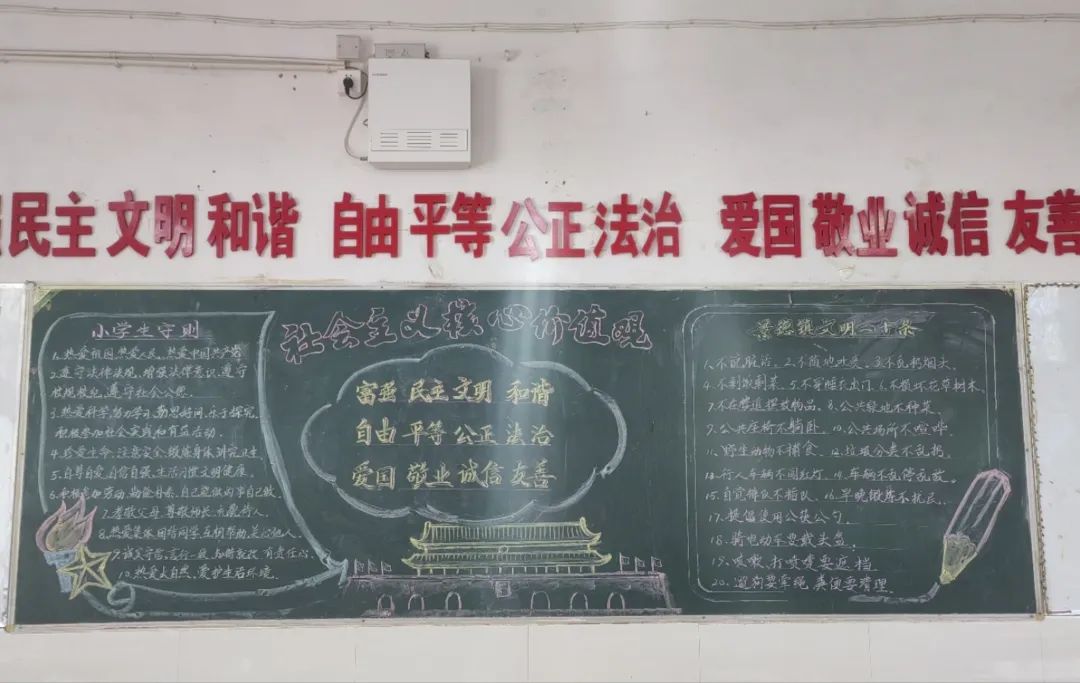 民主 文明 和谐 自由 平等 公正 法治 爱国 敬业 诚信 友善
小学生守则
1.热爱祖国,热爱人民,热爱中国共产党
2.遵守法律法规,增强法律意识,遵守
校规校纪,遵守社会公德.
3.热爱科学,努力学习,勤思好问,乐于探究,
积极参加社会实践和有益活动.
4.珍爱生命,注意安全,锻炼身体,讲究卫生.
5.自尊自爱,自信自强,生活习惯文明健康.
6.积极参加劳动,勤俭朴素,自己能做的事自己做.
7.孝敬父母,尊敬师长,礼貌待人.
8.热爱集体,团结同学,互相帮助,关心他人.
9.诚实守信,言行一致,知错就改,有责任心.
10.热爱大自然,爱护生活环境.
社会主义核心价值观
富强 民主 文明 和谐
自由 平等 公正 法治
爱国 敬业 诚信 友善
景德镇文明二十条
1.不说脏话. 2.不随地吐痰. 3.不乱扔烟头.
4.不剩饭剩菜. 5.不穿睡衣出门. 6.不损坏花草树木.
7.不在楼道摆放物品. 8.公共绿地不种菜.
9.公共座椅不躺卧. 10.公共场所不喧哗.
11.野生动物不捕食. 12.垃圾分类不乱扔.
13.行人车辆不闯红灯. 14.车辆不乱停乱放.
15.自觉排队不插队. 16.早晚锻炼不扰民.
17.提倡使用公筷公勺.
18.骑电动车要戴头盔.
19.咳嗽、打喷嚏要遮挡
20.遛狗要牵绳 粪便要清理.